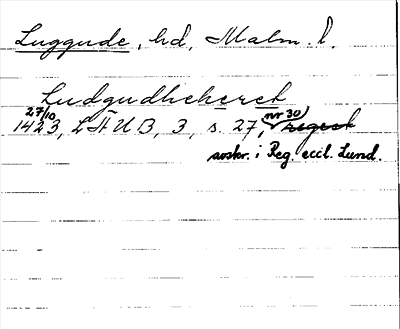 Luggude, hd, Malm. l.
Ludgudhehæret
27/10 nr 30
1423, LÄUB, 3, s. 27, regest
avskr. i Reg. eccl. Lund.